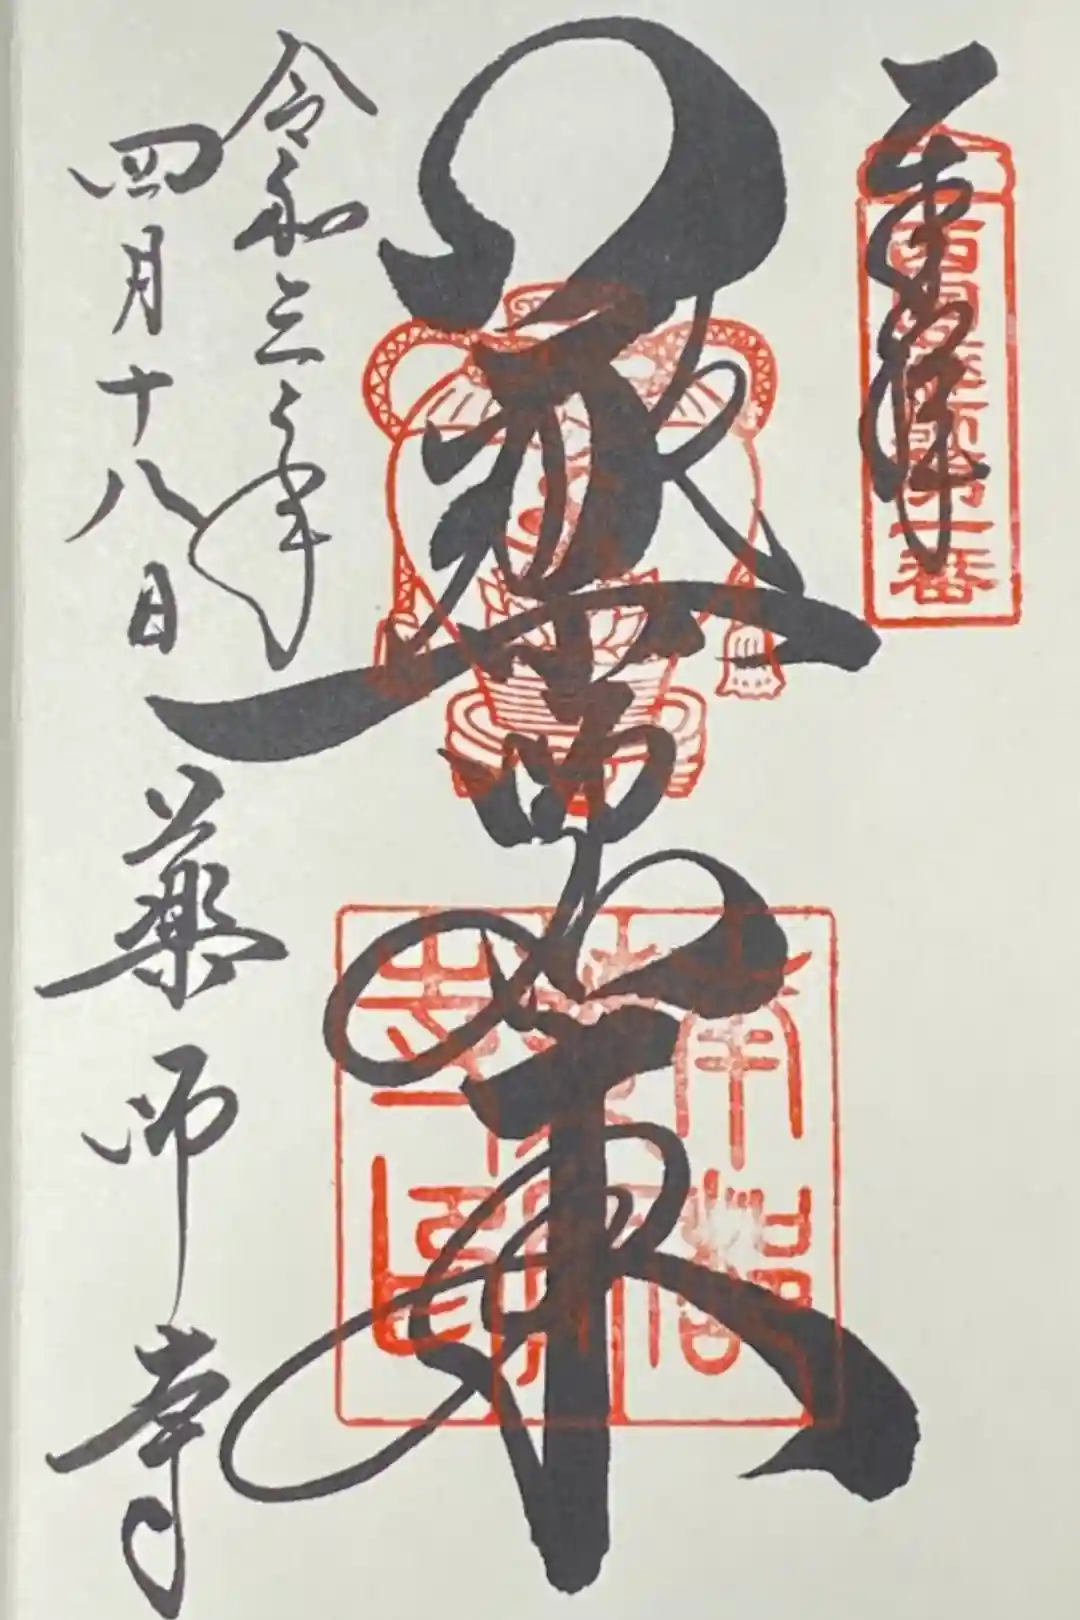 奉拝
西国薬師第一番
薬師如来
令和三年
四月十八日
薬師寺